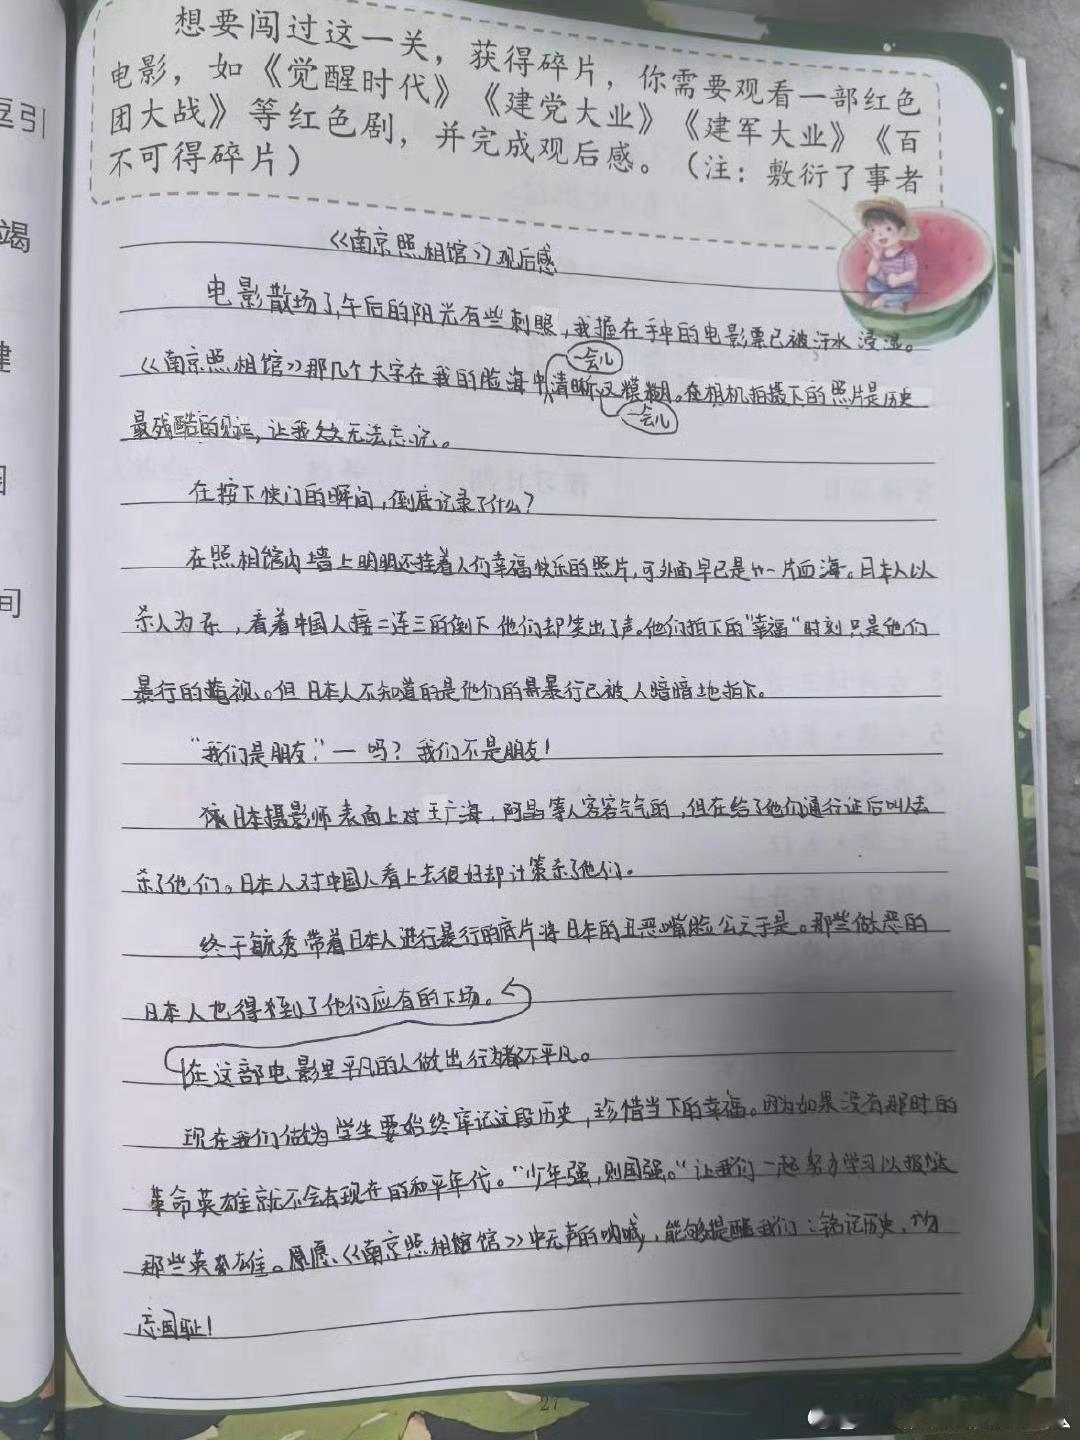 想要闯过这一关，获得碎片，你需要观看一部红色
电影，如《觉醒时代》《建党大业》《建军大业》《百
团大战》等红色剧，并完成观后感。（注：敷衍了事者
不可得碎片）
《南京照相馆》观后感
电影散场了，午后的阳光有些刺眼，我握在手中的电影票已被汗水浸湿。
一会儿
《南京照相馆》那几个大字在我的脸海中清晰又模糊。在相机拍摄下的照片是历史
一会儿
最残酷的见证，让我久久无法忘记。
在按下快门的瞬间，倒底记录了什么？
在照相馆内墙上明明还挂着人们幸福快乐的照片，可外面早已是一片血海。日本人以
杀人为乐，看着中国人接二连三的倒下他们却笑出了声。他们拍下的“幸福”时刻只是他们
暴行的蔑视。但日本人不知道的是他们的暴行已被人暗暗地拍下。
“我们是朋友”—吗？我们不是朋友！
日本摄影师表面上对王广海，阿昌等人客客气气的，但在给了他们通行证后叫人去
杀了他们。日本人对中国人看上去很好却计策杀了他们。
终于毓秀带着日本人进行暴行的底片将日本的丑恶嘴脸公之于是。那些做恶的
日本人也得到了他们应有的下场。
在这部电影里平凡的人做出行为都不平凡。
现在我们做为学生要始终牢记这段历史，珍惜当下的幸福。因为如果没有那时的
革命英雄就不会有现在的和平年代。“少年强，则国强。”让我们一起努力学习以报达
那些英雄。愿《南京照相馆》中无声的呐喊，能够提醒我们：铭记历史，勿
忘国耻！
27
豆引
竭
建
间